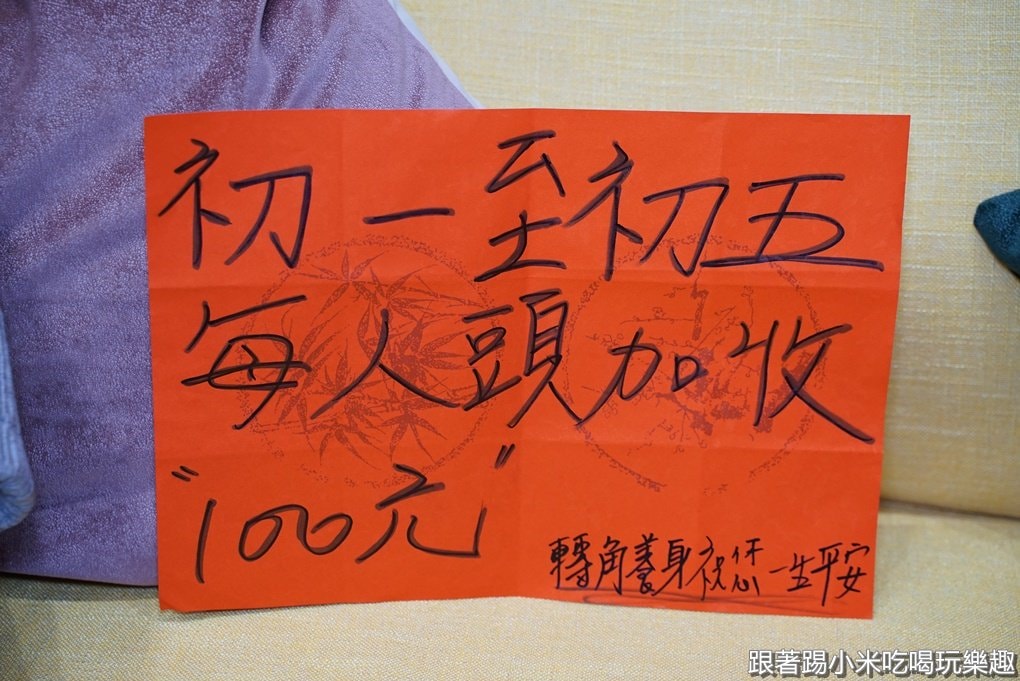 初一至初五
每人頭加收
"100元"
轉角養身祝您一生平安
跟著踢小米吃喝玩樂趣